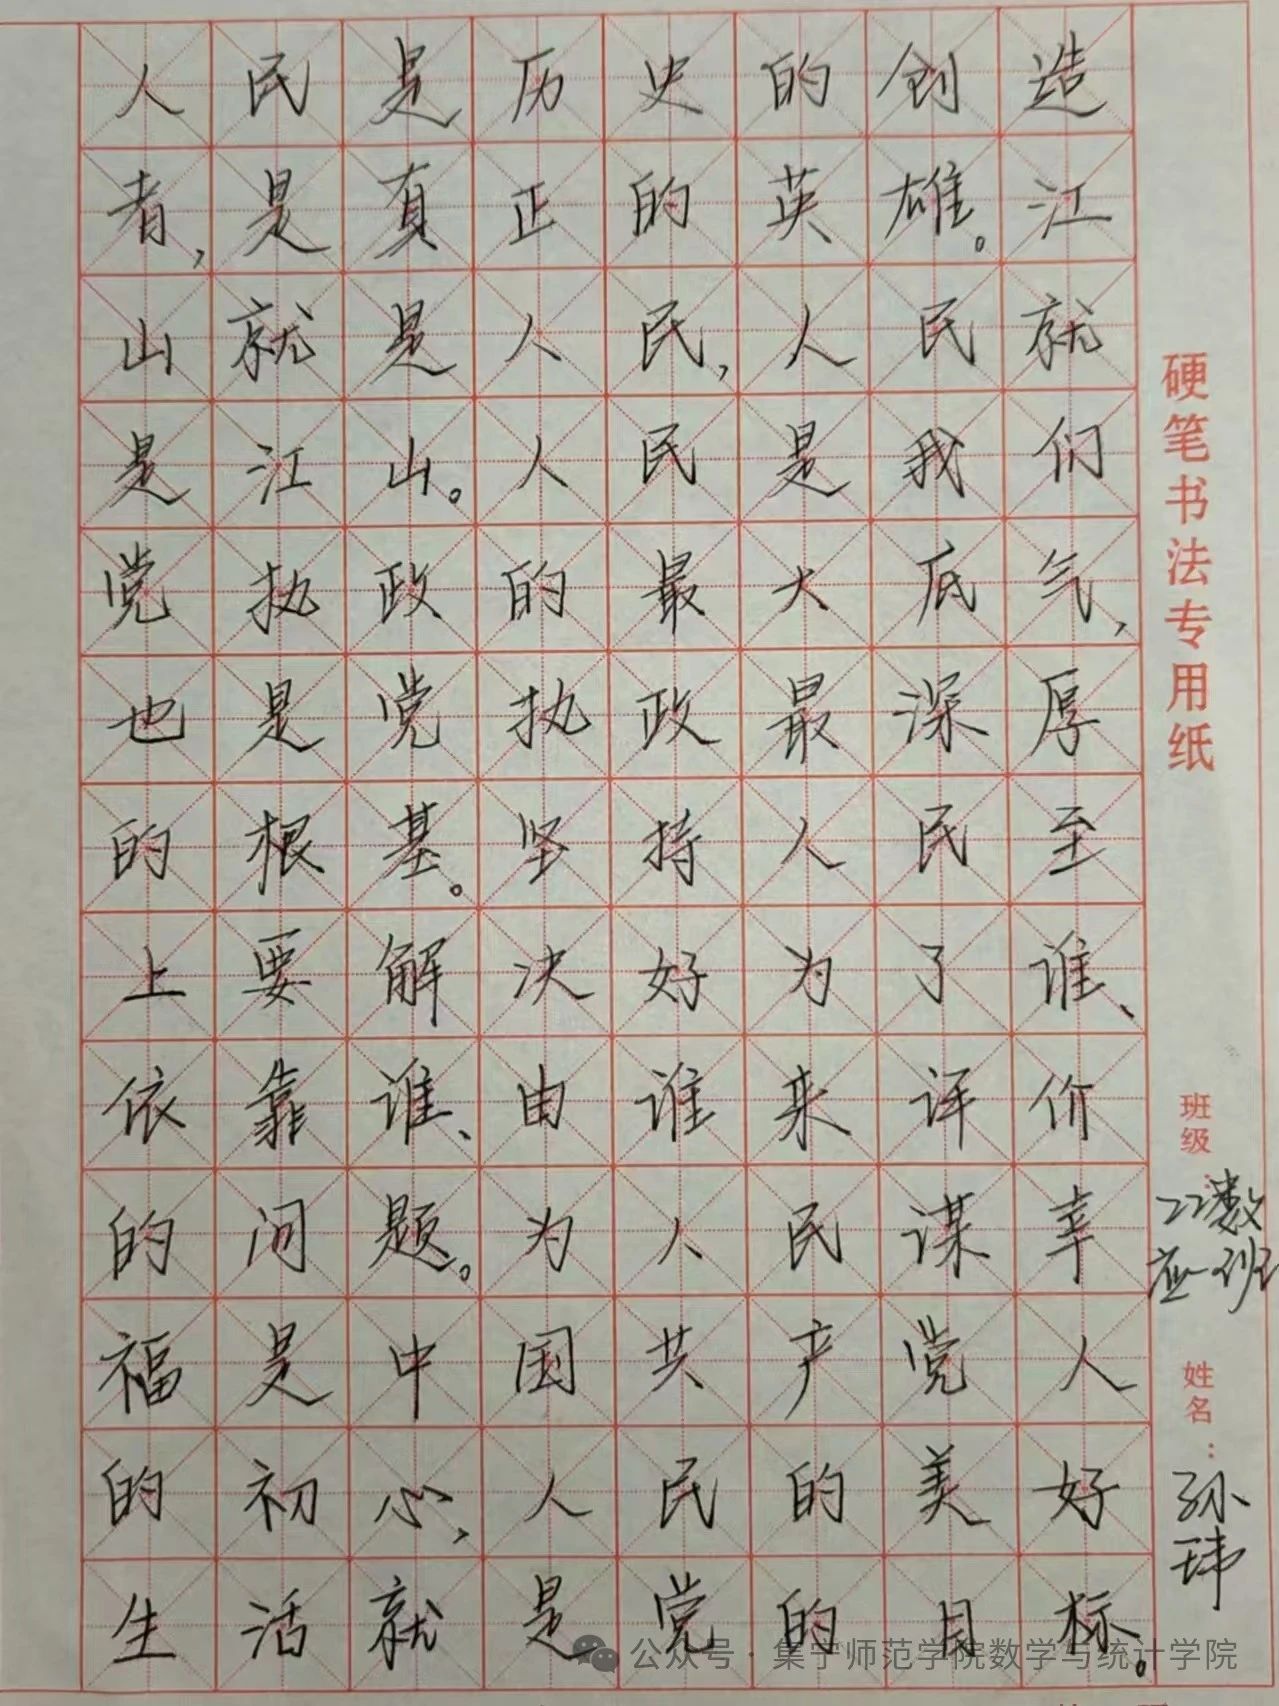 人民是历史的创造
者,是真正的英雄。江
山就是人民,人民就
是江山。人民是我们
党执政的最大底气,
也是党执政最深厚
的根基。坚持人民至
上要解决好为了谁、
依靠谁、由谁来评价
的问题。为人民谋幸
福是中国共产党人
的初心,人民的美好
生活就是党的目标。
硬笔书法专用纸
班级:22数
应一班
姓名:孙玮
公众号·集宁师范学院数学与统计学院